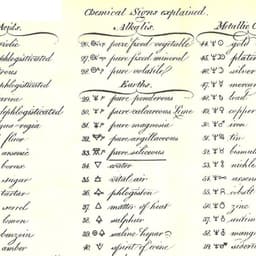 Chemical Signs explained.
Acids.
Alkalis.
Metallic C
pure fixed vegetable
pure fixed mineral
pure volatile
Earths.
pure ponderous
pure calcareous Lime
pure magnesia
pure argillaceous
pure siliceous
water
vital air
phlogiston
matter of heat
sulphur
saline hepar
spirit of wine
phlogisticated
dephlogisticated
aqua-regia
fluor
arsenic
borax
sugar
tartar
sorrel
lemon
benzoin
amber
gold
platina
silver
mercury
lead
copper
iron
tin
bismuth
nickle
arsenic
cobalt
zinc
antimony
manganese
siderite